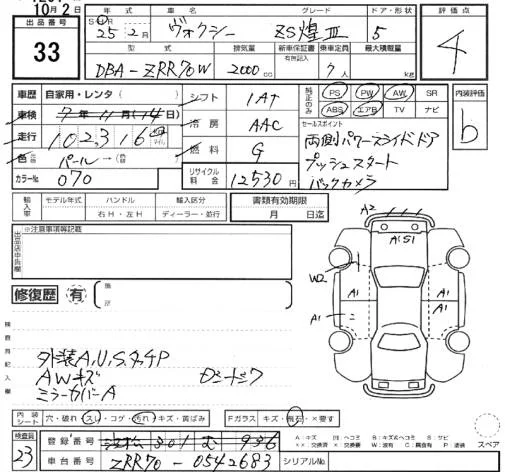 10月2日
出品番号
33
年式
車名
グレード
ドア・形状
評価点
25年2月
ヴォクシー
ZS煌Ⅲ
5
4
型式
排気量
新車保証書
有無記入
乗車定員
最大積載量
DBA-ZRR70W
2000cc
7人
kg
車歴
自家用・レンタ
シフト
IAT
純正のみ
PS PW AW SR
ABS エアB TV ナビ
内装評価
b
車検
7年11月(14日)
走行
102,316
冷房
AAC
セールスポイント
両側パワースライドドア
プッシュスタート
バックカメラ
色
元色
パール→
色替
燃料
G
カラーNo
070
リサイクル料金
12530円
輸入車
モデル年式
ハンドル
右H・左H
輸入区分
ディーラー・並行
書類有効期限
月 日迄
出品店申告欄
※注意事項等記載
修復歴
有
箇所
A2
A1S1
W2
A1
A1
A1
検査員記入欄
外装A,U,S,タッチP
AWキズ
ミラーカバーA
内装シート
穴・破れ・スレ・コゲ・汚れ・キズ・黄ばみ
Fガラス
キズ・飛石・×要す
検査員
23
登録番号
301 む 936
車台番号
ZRR70-0542683
シリアルNo.
A:キズ
凹:ヘコミ
B:キズ&ヘコミ
S:サビ
××:交換済
×:要交換
W:波有
C:腐食
P:塗装
スペア